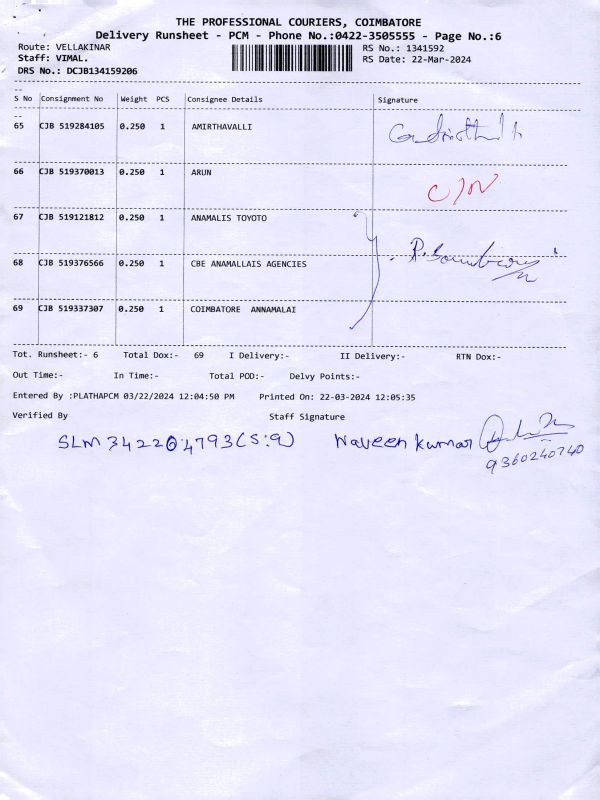 THE PROFESSIONAL COURIERS, COIMBATORE
Delivery Runsheet - PCM - Phone No.:0422-3505555 - Page No.:6
Route: VELLAKINAR RS No.: 1341592
Staff: VIMAL. RS Date: 22-Mar-2024
DRS No.: DCJB134159206
S No Consignment No Weight PCS Consignee Details Signature
65 CJB 519284105 0.250 1 AMIRTHAVALLI
66 CJB 519370013 0.250 1 ARUN
67 CJB 519121812 0.250 1 ANAMALIS TOYOTO
68 CJB 519376566 0.250 1 CBE ANAMALLAIS AGENCIES
69 CJB 519337307 0.250 1 COIMBATORE ANNAMALAI
Tot. Runsheet:- 6 Total Dox:- 69 I Delivery:- II Delivery:- RTN Dox:-
Out Time:- In Time:- Total POD:- Delvy Points:-
Entered By :PLATHAPCM 03/22/2024 12:04:50 PM Printed On: 22-03-2024 12:05:35
Verified By Staff Signature
SLM 342204793 (S:9) Naveen Kumar
9360240740